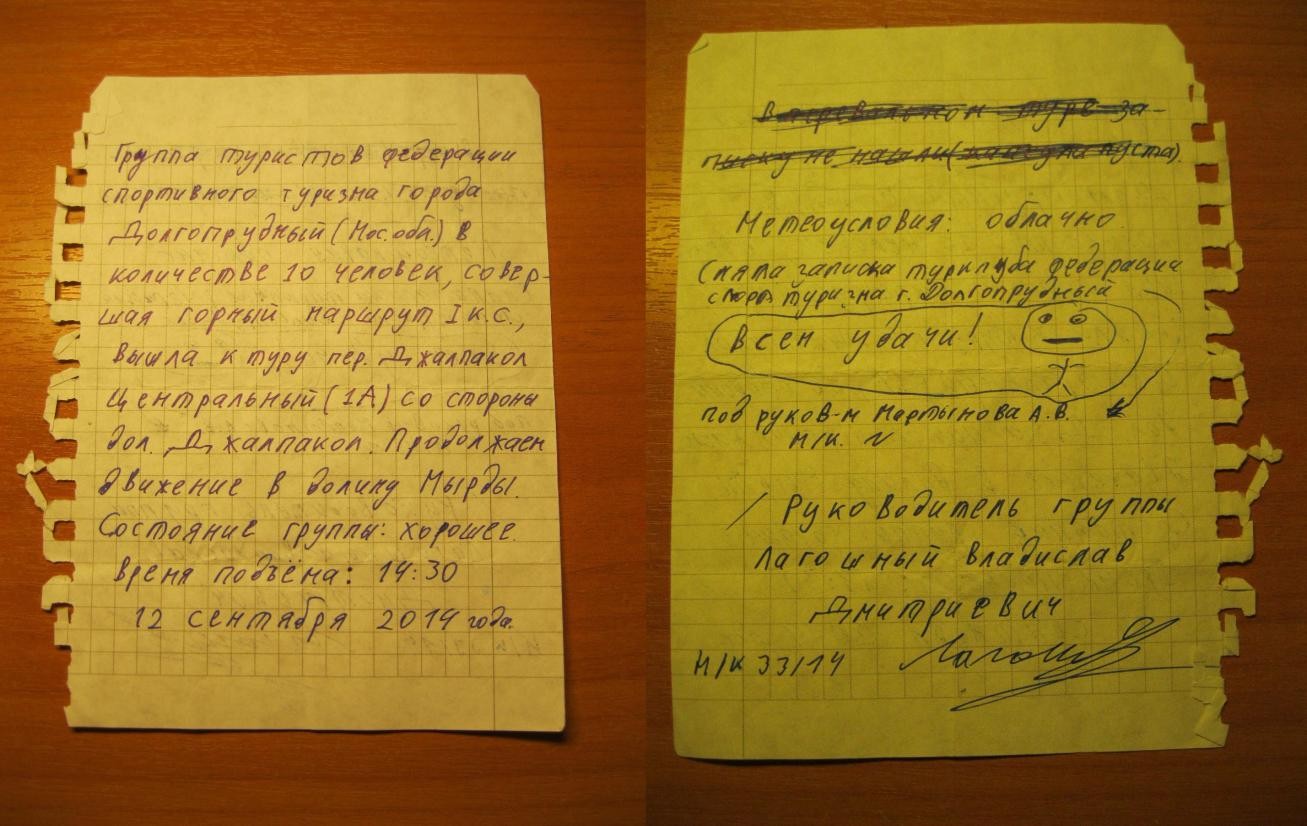 Группа туристов федерации
спортивного туризма города
Долгопрудный (Мос.обл.) в
количестве 10 человек, совер-
шая горный маршрут I к.с.,
вышла к туру пер. Джалпакол
Центральный (1А) со стороны
дол. Джалпакол. Продолжаем
движение в долину Мырды.
Состояние группы: хорошее.
Время подъёма: 14:30
12 сентября 2014 года.
В перевальном туре за-
писку не нашли (
пуста).
Метеоусловия: облачно
Снята записка турклуба федерации
спорт туризма г. Долгопрудный
Всем удачи!
под руков-м Мартынова А.В.
М/К. N
/ Руководитель группы
Лагошный Владислав
Дмитриевич
М/К 33/14